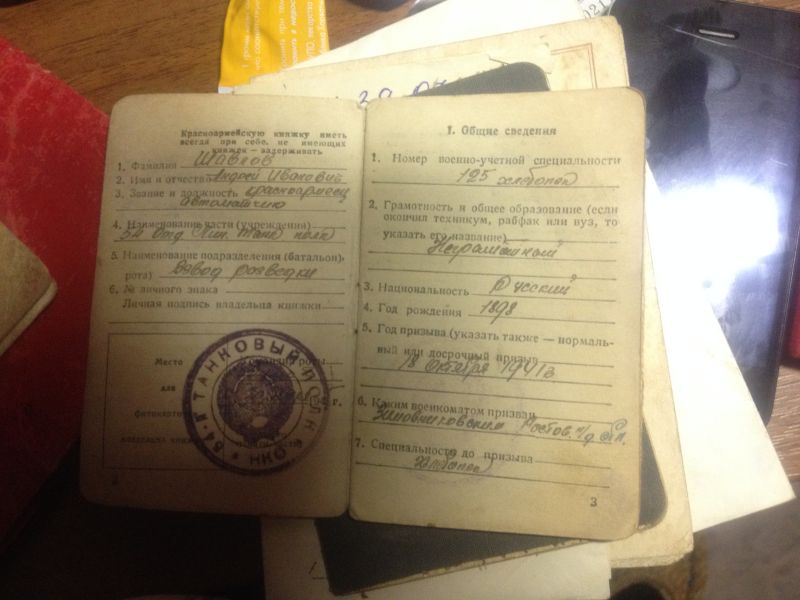 Красноармейскую книжку иметь
всегда при себе, не имеющих
книжек — задерживать
1. Фамилия Шавлов
2. Имя и отчество Андрей Иванович
3. Звание и должность красноармеец
автоматчик
4. Наименование части (учреждения)
54 Отд. Танк полк
5. Наименование подразделения (батальон,
рота) Взвод розведки
6. № личного знака
Личная подпись владельца книжки
Место
для
фотокарточки
владельца книжки
Командир роты
г.
ТАНКОВЫЙ ПОЛК
НКО
I. Общие сведения
1. Номер военно-учетной специальности
125 хлебопек
2. Грамотность и общее образование (если
окончил техникум, рабфак или вуз, то
указать его название)
Неграмотный
3. Национальность Русский
4. Год рождения 1898
5. Год призыва (указать также — нормаль-
ный или досрочный призыв
18 Октября 1941 г
6. Каким военкоматом призван
Зимовниковским Ростов.
7. Специальность до призыва
Хлебопек
3